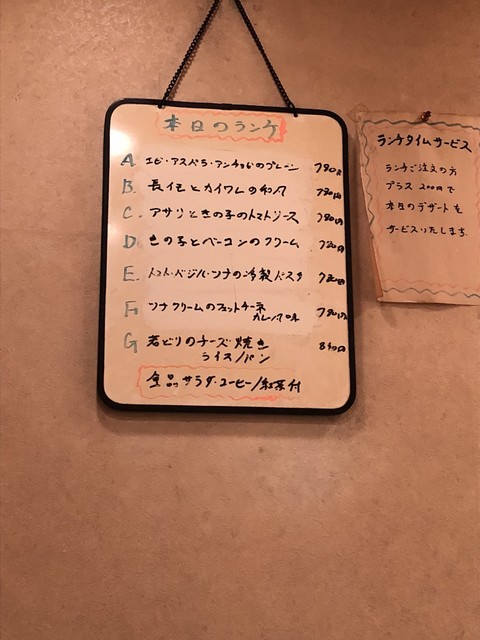 本日のランチ
A. エビ・アスパラ・アンチョビのプレーン 780円
B. 長芋とカイワレの和風 780円
C. アサリときの子のトマトソース 780円
D. きの子とベーコンのクリーム 780円
E. トマト・バジル・ツナの冷製パスタ 780円
F. ツナクリームのフェットチーネ 780円
カレー風味
G 若どりのチーズ焼き 840円
ライス/パン
全品サラダ・コーヒー/紅茶付
ランチタイムサービス
ランチご注文の方
プラス 200円で
本日のデザートを
サービスいたします。